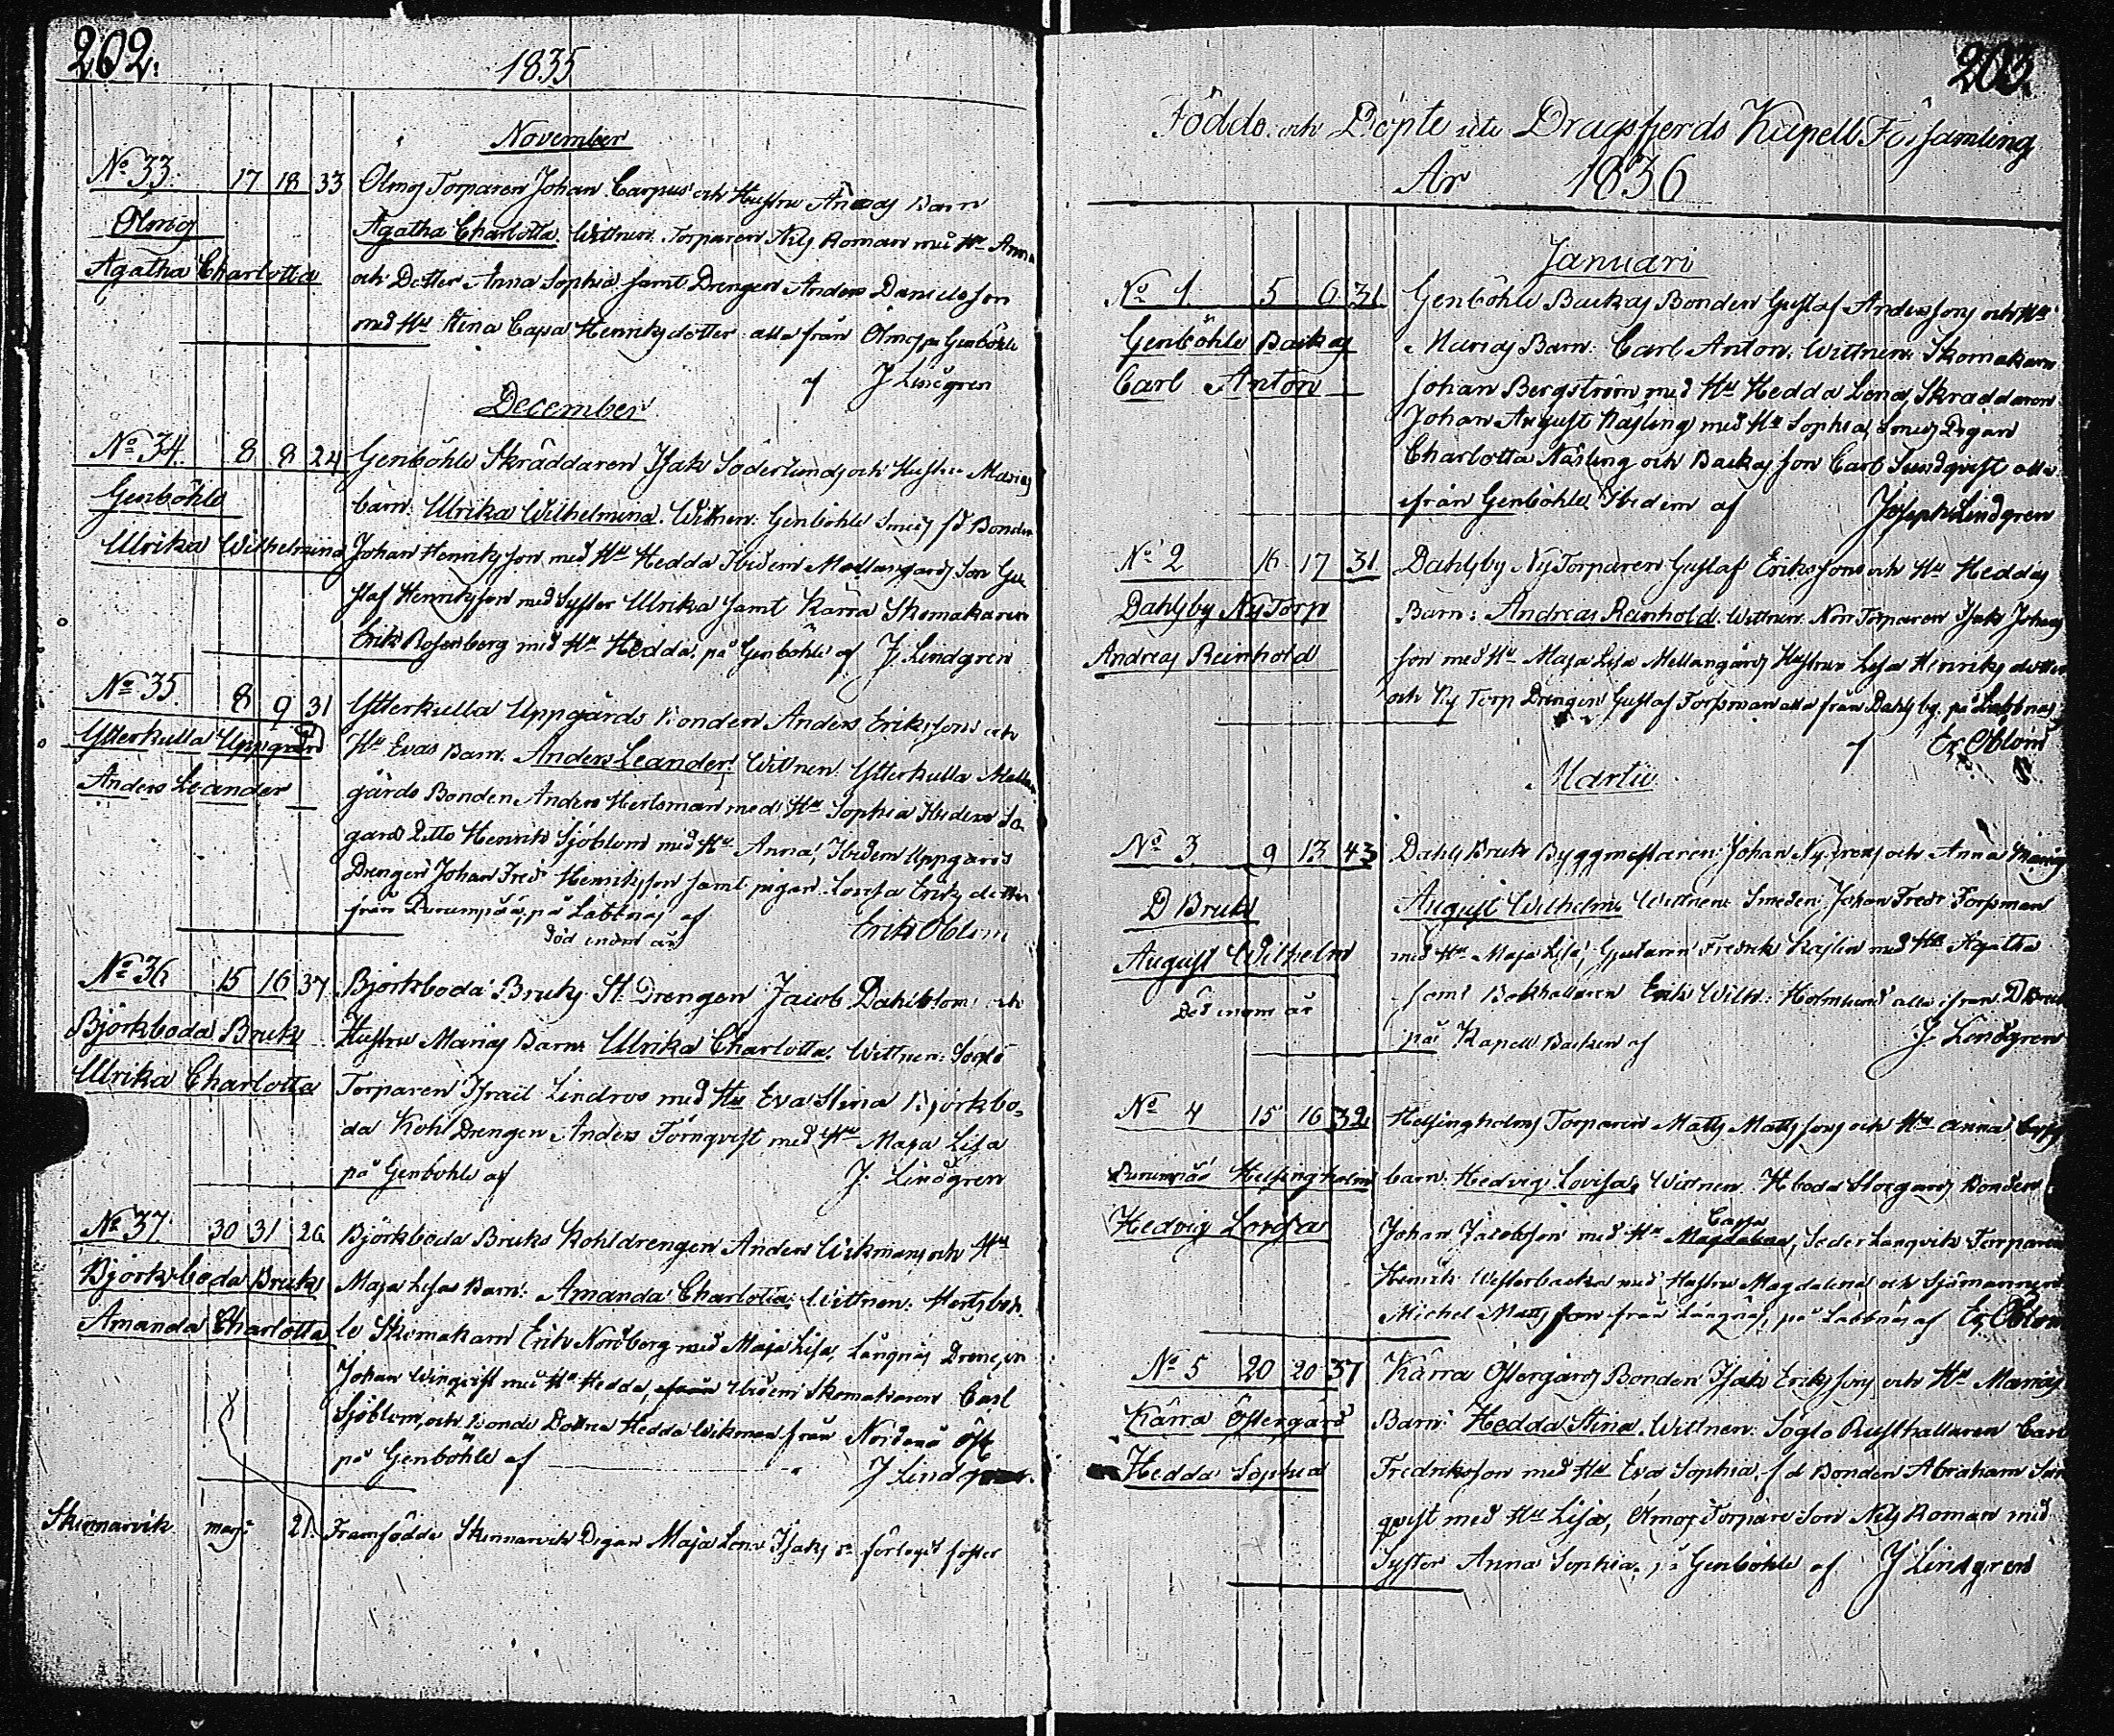 202.
1835
November
No 33. 17 18 33 Olmos Torparen Johan Carpus och Hustru Annas Barn
Olmos
Agatha Charlotta. Wittnen. Torparen Nils Roman med Hu Anna
Agatha Charlotta
och Dotter Anna Sophia samt Drengen Anders Danielsson
med Hu Stina Cajsa Henriksdotter alla från Ölmos på Genböhle
af J Lindgren
December
No 34. 8 8 24 Genböhle Skräddaren Isak Söderlunds och Hustru Marias
Genböhle
barn: Ulrika Wilhelmina. Wittnen: Genböhle Smeds fd Bonden
Ulrika Wilhelmina
Johan Henriksson med Hu Hedda Ibidem Mellangårds Son Gu
staf Henriksson med Syster Ulrika samt Kärra Skomakaren
Erik Rosenberg med Hu Hedda. på Genböhle af J. Lindgren
No 35. 8 9 31 Ytterkulla Uppgårds Bonden Anders Erikssons och
Ytterkulla Uppgård
Hu Evas Barn. Anders Leander. Wittnen. Ytterkulla Mellan
Anders Leander
gårds Bonden Anders Herlsman med Hu Sophia Ibidem
gårds Ditto Henrik Sjöblom med Hu Anna, Ibidem Uppgårds
Drengen Johan Fredr Henriksson samt pigan Lovisa Eriks dotter
från Purunpää, på Labbnäs af Erik Oblom
Död inom år
No 36 15 16 37 Björkboda Bruks St. Drengen Jacob Dahlblom och
Björkboda Bruk
Hustru Marias Barn. Ulrika Charlotta. Wittnen: Söglö
Ulrika Charlotta
Torparen Israil Lindros med Hu Eva Stina Björkbo-
da Kohl Drengen Anders Törnqvist med Hu Maja Lisa
på Genböhle af J. Lindgren
No 37. 30 31 26 Björkboda Bruks Kohldrengen Anders Wikmans och Hu
Björkboda Bruk
Maja Lisas Barn: Amanda Charlotta. Wittnen: Hertsböh
Amanda Charlotta
le Skomakarn Erik Nordberg med Maja Lisa, Långnäs Drengen
Johan Winqvist med Hu Hedda, från Ibidem Skomakaren Carl
Sjöblom, och Bonde Dottren Hedda Wikman från Nordanå Öst
på Genböhle af J Lindgren.
Skinnarvik maji 21. Framfödde Skinnarvik Pigan Maja Lena Isaks dr förlagit foster
203.
Födde och Döpte uti Dragsfjerds Kapell Församling
År 1836
Januari
No 1. 5 6 31 Genböhle Backas Bonden Gustaf Anderssons och Hu
Genböhle Backas
Marias Barn: Carl Anton. Wittnen. Skomakarn
Carl Anton
Johan Bergström med Hu Hedda Lena, Skräddaren
Johan August Näsling med Hu Sophia, Smeds Pigan
Charlotta Näsling och Backas son Carl Sundqvist alla
ifrån Genböhle Ibidem af Joseph Lindgren
No 2 16 17 31 Dahlsby Ny Torparen Gustaf Erikssons och Hu Heddas
Dahlsby Ny Torp
Barn: Andreas Reinhold. Wittnen. Norr Torparen Isak Johans
Andreas Reinhold
son med Hu Maja Lisa Mellangårds Hustrun Lisa Henriks dotter
och Ny Torp Drengen Gustaf Forssman alla från Dahlsby, på Labbnäs
af Er. Oblom
Martii
No 3. 9 13 43 Dahls Bruk Byggmestaren Johan Nygrens och Anna Marias
D Bruk
August Wilhelm. Wittnen: Smeden Johan Fredr Forsman
August Wilhelm
med Hu Maja Lisa, Gjutaren Fredrik Kajlin med Hu Agatha
samt Bokhållaren Erik Wilh: Holmlund alla ifrån D Bruk
Död inom år
på Kapell Backen af J. Lindgren
No 4 15 16 32 Helsingholms Torparen Matts Mattssons och Hu Anna Cajsas
Purunpää Helsingholm
barn. Hedvig Lovisa, Wittnen. Hboda Storgårds Bonden
Hedvig Lovisa
Johan Jacobsson med Hu Magdalena Cajsa, Söderlångvik Torparen
Henrik Westerbacka med Hustru Magdalena och Sjömannen
Michel Matts son från Långnäs, på Labbnäs af Er. Oblom
No 5 20 20 37 Kärra Östergårds Bonden Isak Erikssons och Hu Marias
Kärra Östergård
Barn: Hedda Stina. Wittnen: Söglö Rusthållaren Carl
Hedda Sophia
Fredriksson med Hu Eva Sophia, fd Bonden Abraham Sun
qvist med Hu Lisa, Ölmos Torpare Son Nils Roman med
Syster Anna Sophia. på Genböhle af J Lindgren